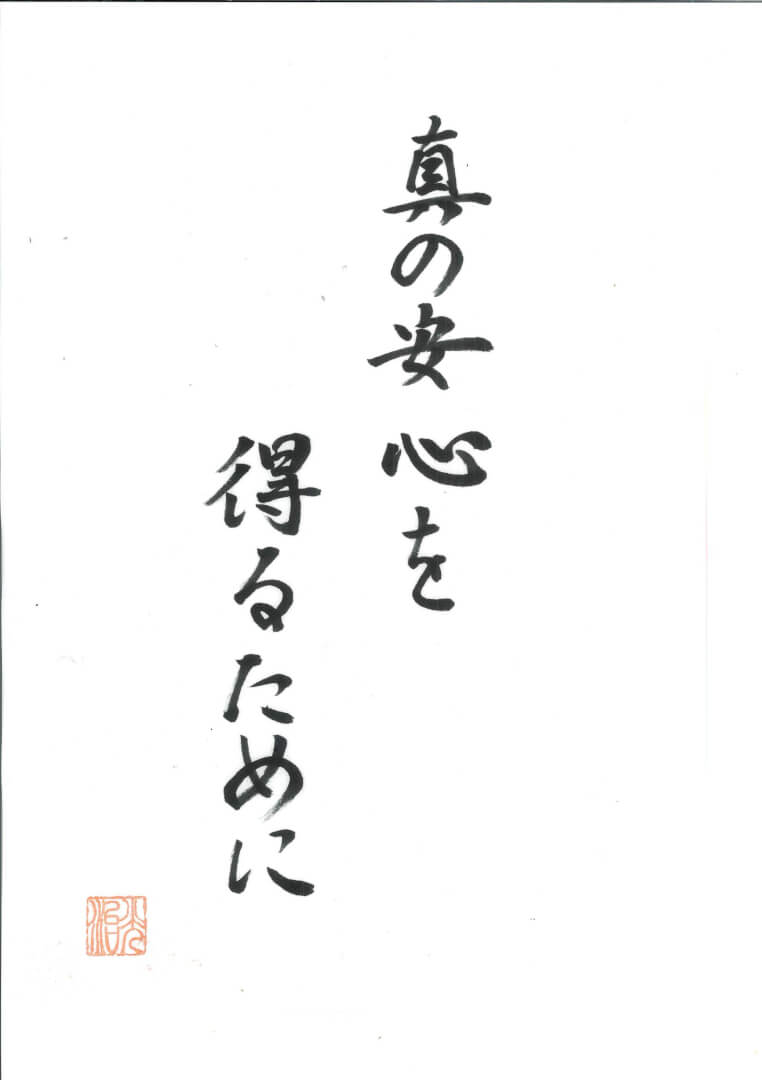 真の安心を
得るために